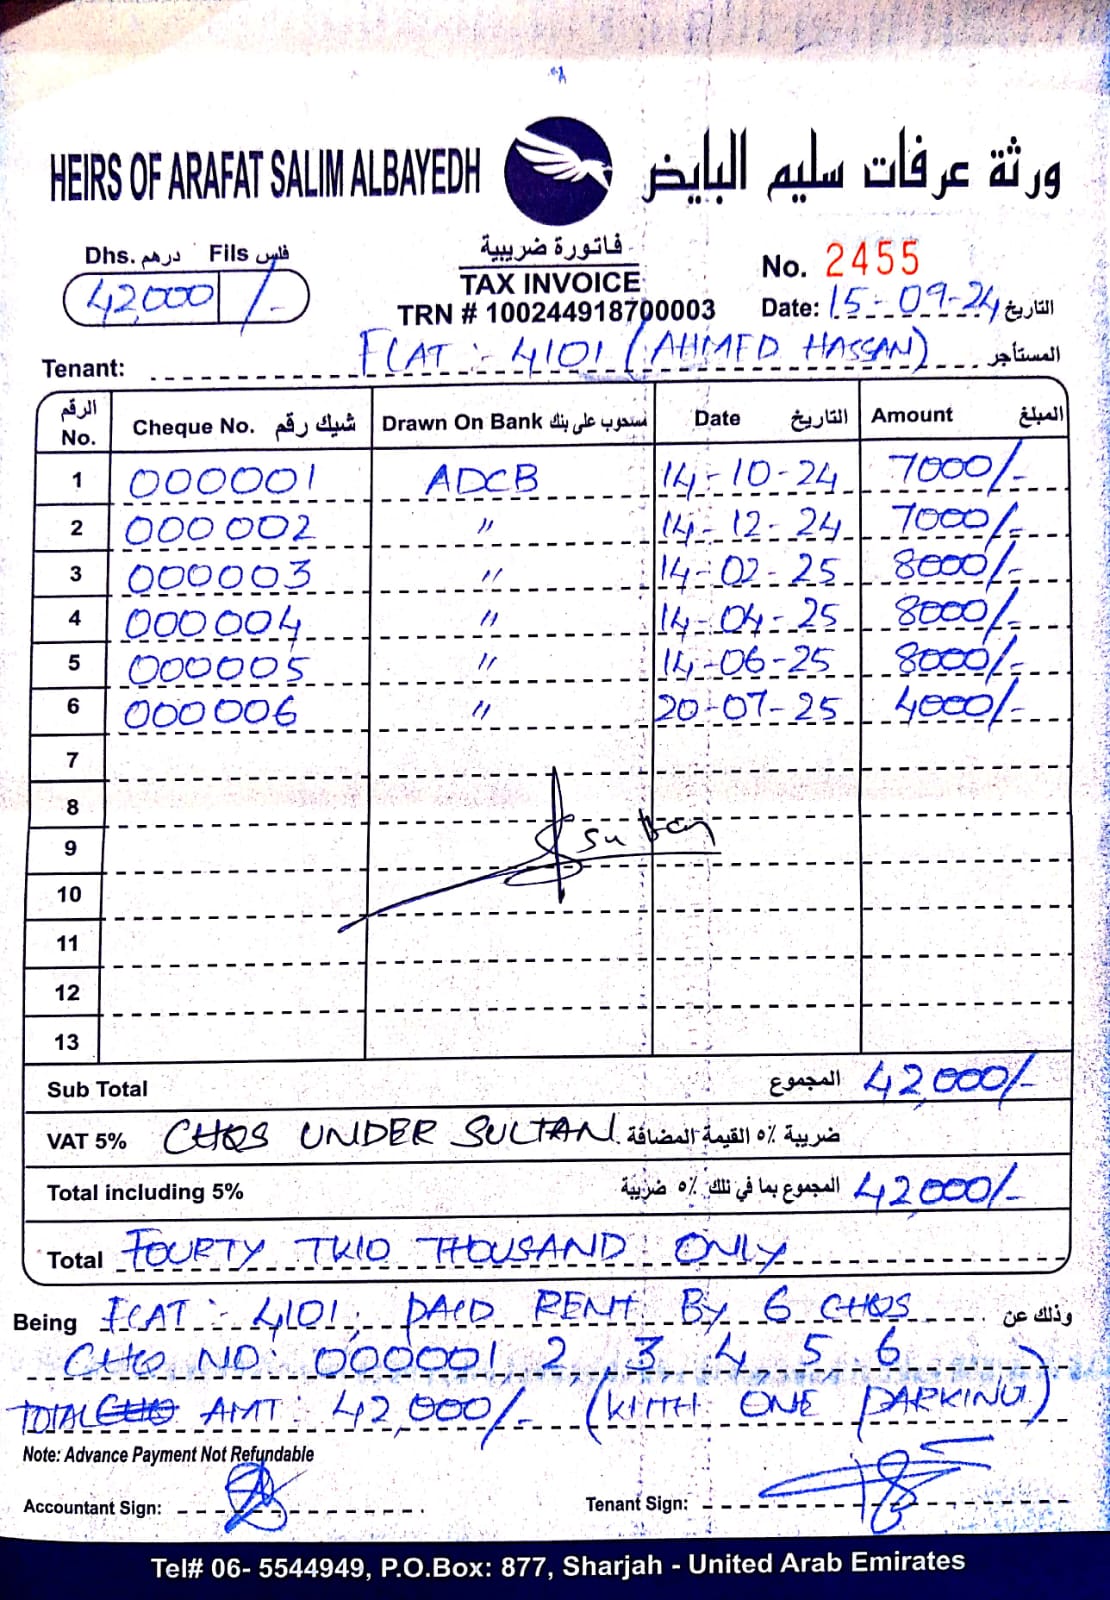 HEIRS OF ARAFAT SALIM ALBAYEDH ورثة عرفات سليم البايض
Dhs. درهم Fils فلس
42,000 /-
فاتورة ضريبية
TAX INVOICE
TRN # 100244918700003
No. 2455
Date: 15-09-24 التاريخ
Tenant: FLAT :- 4101 (AHMED HASSAN) المستأجر
الرقم No. Cheque No. شيك رقم Drawn On Bank مسحوب على بنك Date التاريخ Amount المبلغ
1 000001 ADCB 14-10-24 7000/-
2 000002 " 14-12-24 7000/-
3 000003 " 14-02-25 8000/-
4 000004 " 14-04-25 8000/-
5 000005 " 14-06-25 8000/-
6 000006 " 20-07-25 4000/-
7
8
9 Sultan
10
11
12
13
Sub Total المجموع 42,000/-
VAT 5% CHQS UNDER SULTAN. ضريبة ٥٪ القيمة المضافة
Total including 5% المجموع بما في ذلك ٥٪ ضريبة 42,000/-
Total FOURTY TWO THOUSAND ONLY
Being FLAT :- 4101, PAID RENT BY 6 CHQS وذلك عن
CHQ NO: 000001, 2, 3, 4, 5, 6
TOTAL CHQ AMT: 42,000/- (WITH ONE PARKING)
Note: Advance Payment Not Refundable
Accountant Sign: Tenant Sign:
Tel# 06- 5544949, P.O.Box: 877, Sharjah - United Arab Emirates